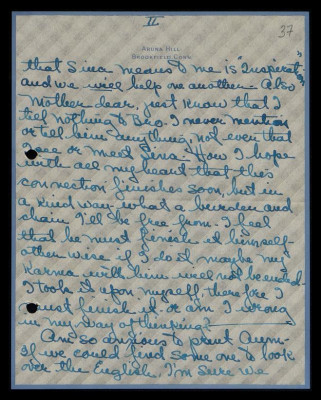 II
37
ABURA HILL
BROOKFIELD CONN.
that Sina means to me is "Inspiration"
and we will help one another - Also
Mother dear, just know that I
tell nothing to Bro. I never mention
or tell him anything, not even that
I see or meet Sina. How I hope
with all my heart that this
connection finishes soon, but in
a kind way - what a burden and
chain I'll be free from. I feel
that he must finish it himself -
otherwise if I do it maybe my
Karma with him will not be ended.
I took it upon myself therefore I
must finish it or am I wrong
in my way of thinking?
Am so anxious to print Aum -
If we could find some one to look
over the English, I'm sure we